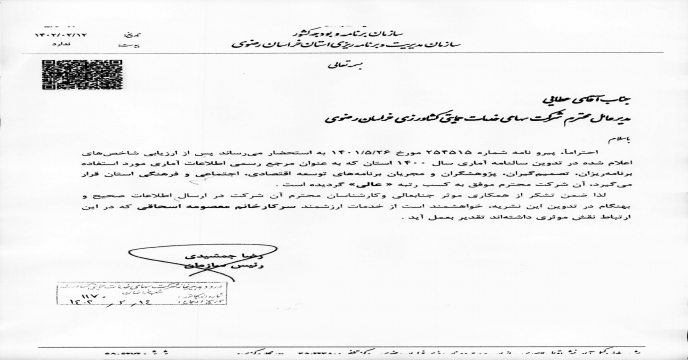 سازمان برنامه و بودجه کشور
سازمان مدیریت و برنامه ریزی استان خراسان رضوی
۱۴۰۲/۰۲/۱۲
ندارد
بسمه تعالی
جناب آقای عطایی
مدیرعامل محترم شرکت سهامی خدمات حمایتی کشاورزی خراسان رضوی
باسلام
احتراماً، پیرو نامه شماره ۲۵۴۵۱۵ مورخ ۱۴۰۱/۵/۲۶ به استحضار می‌رساند پس از ارزیابی شاخص‌های
اعلام شده در تدوین سالنامه آماری سال ۱۴۰۰ استان که به عنوان مرجع رسمی اطلاعات آماری مورد استفاده
برنامه‌ریزان، تصمیم‌گیران، پژوهشگران و مجریان برنامه‌های توسعه اقتصادی، اجتماعی و فرهنگی استان قرار
می‌گیرد، آن شرکت محترم موفق به کسب رتبه «عالی» گردیده است.
لذا ضمن تشکر از همکاری موثر جنابعالی وکارشناسان محترم آن شرکت در ارسال اطلاعات صحیح و
بهنگام در تدوین این نشریه، خواهشمند است از خدمات ارزشمند سرکارخانم معصومه اسحاقی که در این
ارتباط نقش موثری داشته‌اند تقدیر بعمل آید.
رضا جمشیدی
رئیس سازمان